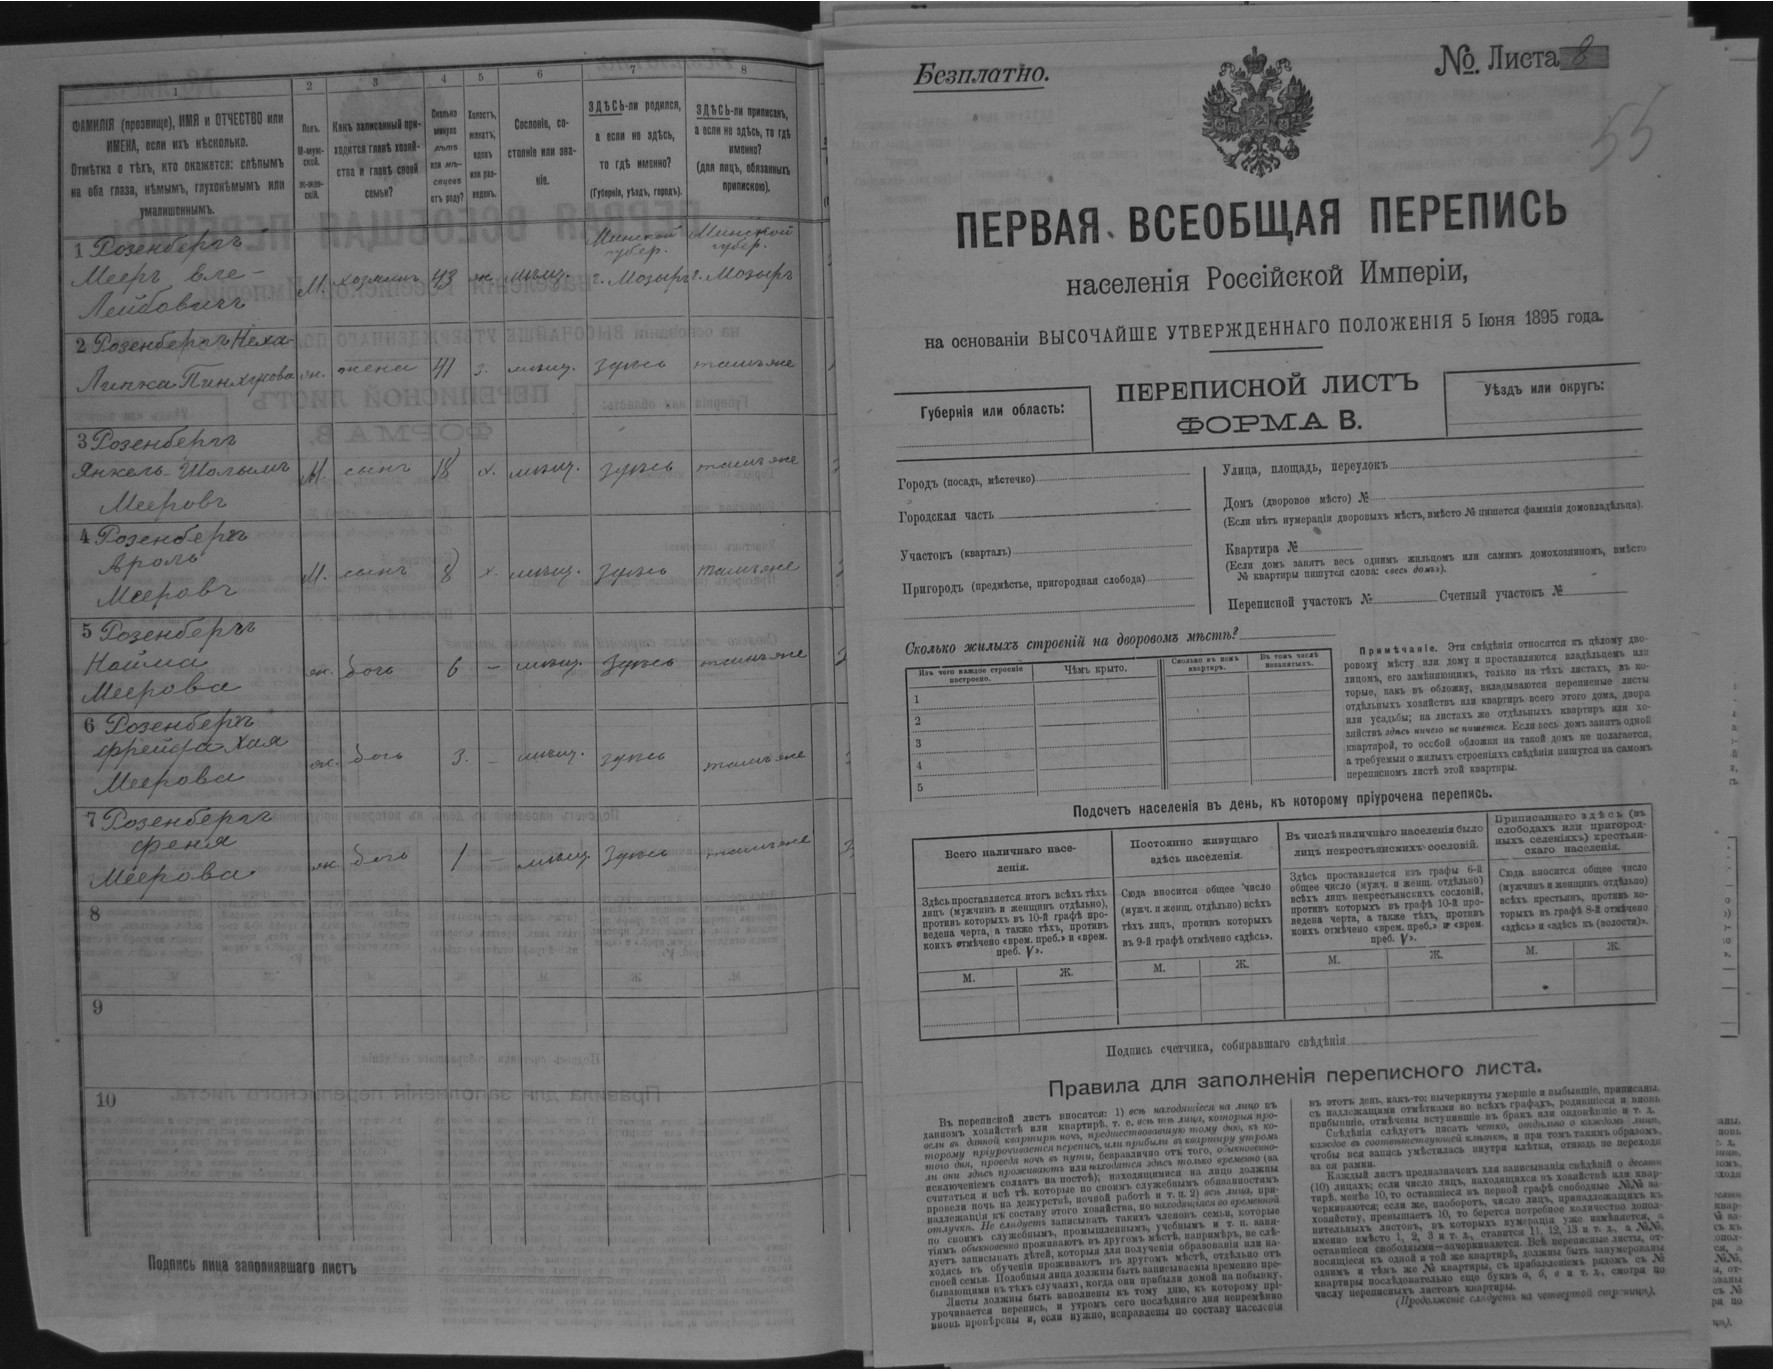 1
2
3
4
5
6
7
8
ФАМИЛІЯ (прозвище), ИМЯ и ОТЧЕСТВО или
ИМЕНА, если ихъ нѣсколько.
Отмѣтка о тѣхъ, кто окажется: слѣпымъ
на оба глаза, нѣмымъ, глухонѣмымъ или
умалишеннымъ.
Полъ.
М-муж-
ской.
Ж-жен-
скій.
Какъ записанный при-
ходится главѣ хозяй-
ства и главѣ своей
семьи?
Сколько
минуло
лѣтъ
или мѣ-
сяцевъ
отъ роду?
Холостъ,
женатъ,
вдовъ
или раз-
веденъ.
Сословіе, со-
стояніе или зва-
ніе.
ЗДѢСЬ-ли родился,
а если не здѣсь,
то гдѣ именно?
(Губернія, уѣздъ, городъ).
ЗДѢСЬ-ли приписанъ,
а если не здѣсь, то гдѣ
именно?
(для лицъ, обязанныхъ
припискою).
1 Розенбергъ
Мееръ
Лейбовичъ
М. хозяинъ 43 ж. мѣщ. Минской губер. г. Мозырь Минской губер. г. Мозырь
2 Розенбергъ Неха-
Липка Пинхусова
ж. жена 41 з. мѣщ. здѣсь тамъ же
3 Розенбергъ
Янкель-Шолымъ
Мееровъ
М сынъ 18 х. мѣщ. здѣсь тамъ же
4 Розенбергъ
Аронъ
Мееровъ
М. сынъ 8 х. мѣщ. здѣсь тамъ же
5 Розенбергъ
Меерова
ж. дочь 6 – мѣщ. здѣсь тамъ же
6 Розенбергъ
Фрейда Хая
Меерова
ж. дочь 3. – мѣщ. здѣсь тамъ же
7 Розенбергъ
Феня
Меерова
ж дочь 1 – мѣщ. здѣсь тамъ же
8
9
10
Подпись лица заполнявшаго листъ
Безплатно.
№. Листа 8
55
ПЕРВАЯ ВСЕОБЩАЯ ПЕРЕПИСЬ
населенія Россійской Имперіи,
на основаніи ВЫСОЧАЙШЕ УТВЕРЖДЕННАГО ПОЛОЖЕНІЯ 5 Іюня 1895 года.
Губернія или область:
ПЕРЕПИСНОЙ ЛИСТЪ
ФОРМА В.
Уѣздъ или округъ:
Городъ (посадъ, мѣстечко)
Городская часть
Участокъ (кварталъ)
Пригородъ (предмѣстье, пригородная слобода)
Улица, площадь, переулокъ
Домъ (дворовое мѣсто) №
(Если нѣтъ нумераціи дворовыхъ мѣстъ, вмѣсто № пишется фамилія домовладѣльца).
Квартира №
(Если домъ занятъ весь однимъ жильцомъ или самимъ домохозяиномъ, вмѣсто
№ квартиры пишутся слова: «весь домъ»).
Переписной участокъ № Счетный участокъ №
Сколько жилыхъ строеній на дворовомъ мѣстѣ?
Изъ чего каждое строеніе
построено.
Чѣмъ крыто.
Сколько въ немъ
квартиръ.
Въ томъ числѣ
незанятыхъ.
1
2
3
4
5
Примѣчаніе. Эти свѣдѣнія относятся къ цѣлому дво-
ровому мѣсту или дому и проставляются владѣльцемъ или
лицомъ, его замѣняющимъ, только на тѣхъ листахъ, въ ко-
торые, какъ въ обложку, вкладываются переписные листы
отдѣльныхъ хозяйствъ или квартиръ всего этого дома, двора
или усадьбы; на листахъ же отдѣльныхъ квартиръ или хо-
зяйствъ здѣсь ничего не пишется. Если весь домъ занятъ одной
квартирой, то особой обложки на такой домъ не полагается,
а требуемыя о жилыхъ строеніяхъ свѣдѣнія пишутся на самомъ
переписномъ листѣ этой квартиры.
Подсчетъ населенія въ день, къ которому пріурочена перепись.
Всего наличнаго насе-
ленія.
Здѣсь проставляется итогъ всѣхъ тѣхъ
лицъ (мужчинъ и женщинъ отдѣльно),
противъ которыхъ въ 10-й графѣ про-
ведена черта, а также тѣхъ, противъ
коихъ отмѣчено «врем. преб.» и «врем.
преб. V».
Постоянно живущаго
здѣсь населенія.
Сюда вносится общее число
(мужч. и женщ. отдѣльно) всѣхъ
тѣхъ лицъ, противъ которыхъ
въ 9-й графѣ отмѣчено «здѣсь».
Въ числѣ наличнаго населенія было
лицъ некрестьянскихъ сословій.
Здѣсь проставляется изъ графы 6-й
общее число (мужч. и женщ. отдѣльно)
всѣхъ лицъ некрестьянскихъ сословій,
противъ которыхъ въ графѣ 10-й про-
ведена черта, а также тѣхъ, противъ
коихъ отмѣчено «врем. преб.» и «врем.
преб. V».
Приписаннаго здѣсь (въ
слободахъ или пригород-
ныхъ селеніяхъ) крестьян-
скаго населенія.
Сюда вносится общее число
(мужчинъ и женщинъ отдѣльно)
всѣхъ крестьянъ, противъ ко-
торыхъ въ графѣ 8-й отмѣчено
«здѣсь» и «здѣсь къ (волости)».
М. Ж. М. Ж. М. Ж. М. Ж.
Подпись счетчика, собиравшаго свѣдѣнія
Правила для заполненія переписного листа.
Въ переписной листъ вносятся: 1) всѣ находящіеся на лицо въ
данномъ хозяйствѣ или квартирѣ, т. е. всѣ тѣ лица, которыя про-
вели въ данной квартирѣ ночь, предшествовавшую тому дню, къ ко-
торому пріурочивается перепись, или прибыли въ квартиру утромъ
того дня, проведя ночь въ пути, безразлично отъ того, обыкновенно-
ли они здѣсь проживаютъ или находятся здѣсь только временно (за
исключеніемъ солдатъ на постоѣ); находящимися на лицо должны
считаться и всѣ тѣ, которые по своимъ служебнымъ обязанностямъ
провели ночь на дежурствѣ, ночной работѣ и т. п. 2) всѣ лица, при-
надлежащія къ составу этого хозяйства, но находящіяся во временной
отлучкѣ. Не слѣдуетъ записывать такихъ членовъ семьи, которые
по своимъ служебнымъ, промышленнымъ, учебнымъ и т. п. заня-
тіямъ обыкновенно проживаютъ въ другомъ мѣстѣ, напримѣръ, не слѣ-
дуетъ записывать дѣтей, которыя для полученія образованія или на-
ходясь въ обученіи проживаютъ въ другомъ мѣстѣ, отдѣльно отъ
своей семьи. Подобныя лица должны быть записываемы временно пре-
бывающими въ тѣхъ случаяхъ, когда они прибыли домой на побывку.
Листы должны быть заполнены къ тому дню, къ которому прі-
урочивается перепись, и утромъ сего послѣдняго дня непремѣнно
вновь провѣрены и, если нужно, исправлены по составу населенія
въ этотъ день, какъ-то: вычеркнуты умершіе и выбывшіе, приписаны
съ надлежащими отмѣтками во всѣхъ графахъ, родившіеся и вновь
прибывшіе, отмѣчены вступившіе въ бракъ или овдовѣвшіе и т. д.
Свѣдѣнія слѣдуетъ писать четко, отдѣльно о каждомъ лицѣ,
каждое въ соотвѣтствующей клѣткѣ, и при томъ такимъ образомъ,
чтобы вся запись умѣстилась внутри клѣтки, отнюдь не переходя
за ея рамки.
Каждый листъ предназначенъ для записыванія свѣдѣній о десяти
(10) лицахъ; если число лицъ, находящихся въ хозяйствѣ или квар-
тирѣ, менѣе 10, то оставшіеся въ первой графѣ свободные №№ за-
черкиваются; если же, наоборотъ, число лицъ, принадлежащихъ къ
хозяйству, превышаетъ 10, то берется потребное количество допол-
нительныхъ листовъ, въ которыхъ нумерація уже измѣняется, а
именно вмѣсто 1, 2, 3 и т. д., ставится 11, 12, 13 и т. д., а №№,
оставшіеся свободными—зачеркиваются. Всѣ переписные листы, от-
носящіеся къ одной и той же квартирѣ, должны быть занумерованы
однимъ и тѣмъ же № квартиры, съ прибавленіемъ рядомъ съ №
квартиры послѣдовательно еще буквъ а, б, в и т. д., смотря по
числу переписныхъ листовъ квартиры.
(Продолженіе слѣдуетъ на четвертой страницѣ).